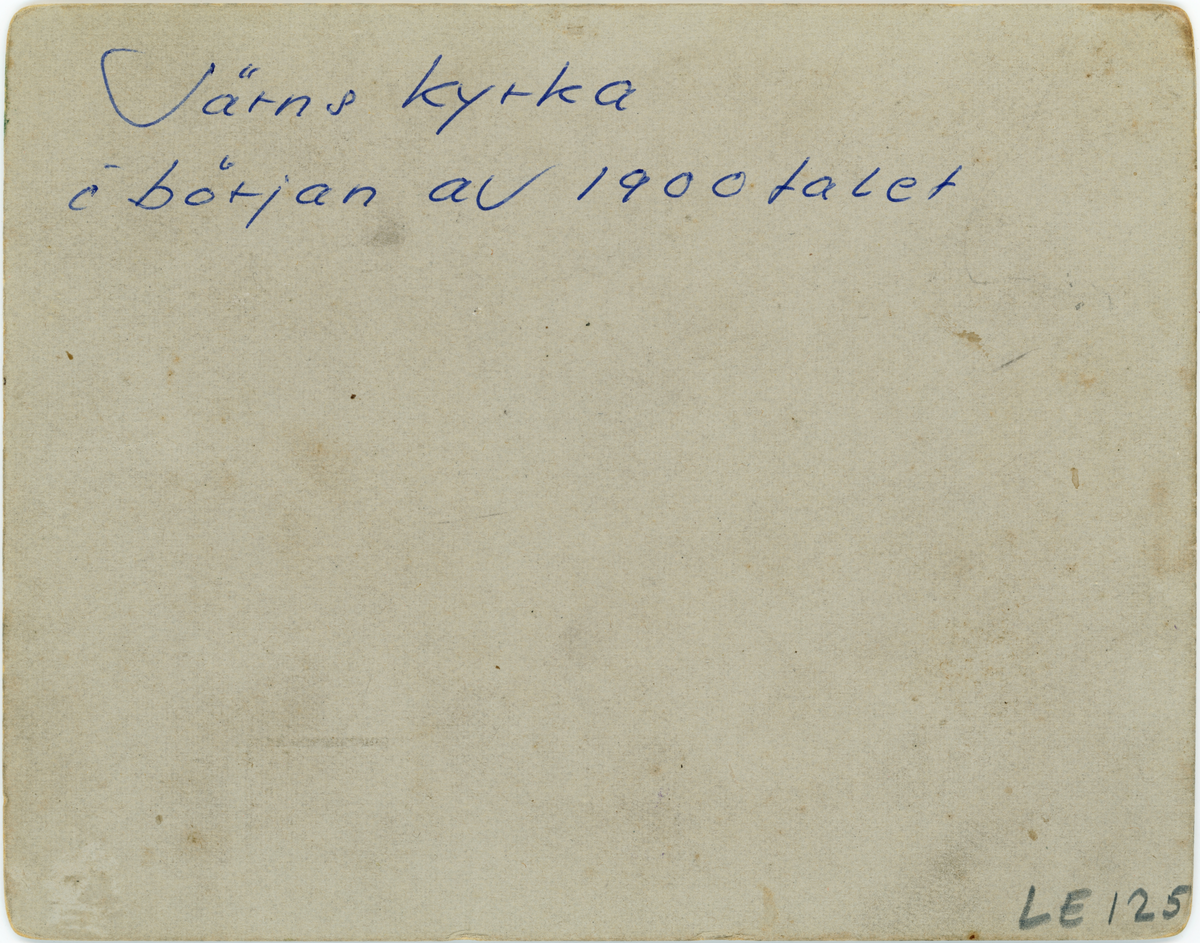 Värns kyrka
i början av 1900 talet
LE 125